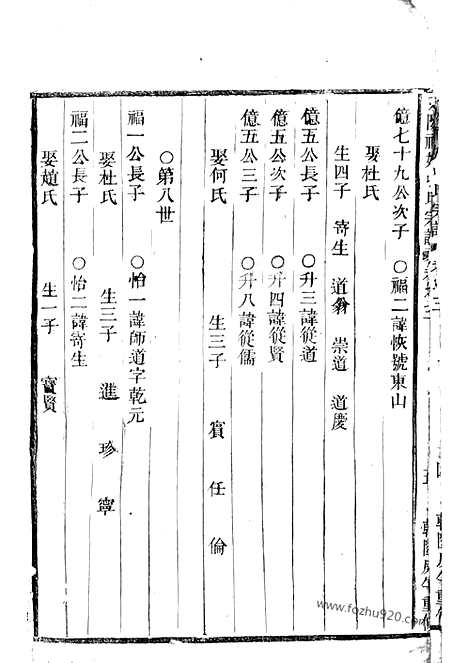 億七十九公次子　○福二諱恢號東山
娶杜氏
生四子　寄生　道翁　崇道　道慶
億五公長子　○升三諱從道
億五公次子　○升四諱從賢
億五公三子　○升八諱從儒
娶何氏　生三子　賓　任　倫
○第八世
福一公長子　○怡一諱師道字乾元
娶杜氏　生三子　進　珍　寧
福二公長子　○怡二諱寄生
娶趙氏　生一子　寳賢
www.fozhu920.com